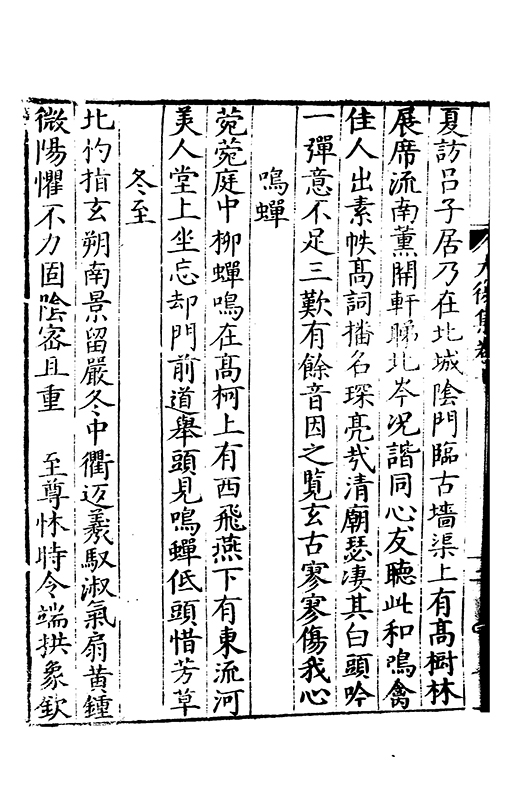 夏訪呂子居乃在北城陰門臨古墻渠上有高樹林
展席流南薰開軒睇北岑况諧同心友聽此和鳴禽
佳人出素帙高詞播名琛亮哉清廟瑟凄其白頭吟
一彈意不足三歎有餘音因之覽玄古寥寥傷我心
鳴蟬
菀菀庭中柳蟬鳴在高柯上有西飛燕下有東流河
美人堂上坐忘却門前道舉頭見鳴蟬低頭惜芳草
冬至
北杓指玄朔南景留嚴冬中衢迈羲馭淑氣扇黄鍾
微陽懼不力固陰密且重 至尊怵時令端拱象欽